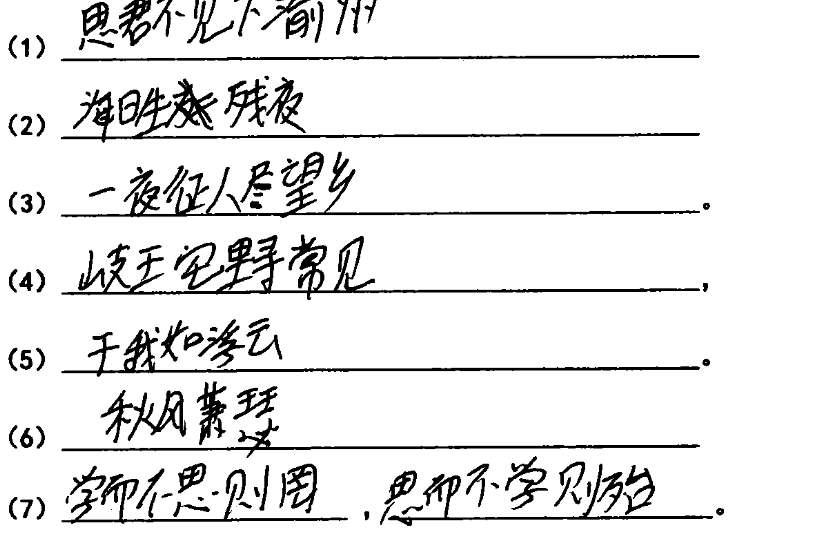 (1) 思君不见下渝州
(2) 海日生残夜
(3) 一夜征人尽望乡。
(4) 岐王宅里寻常见,
(5) 于我如浮云。
(6) 秋风萧瑟
(7) 学而不思则罔,思而不学则殆。